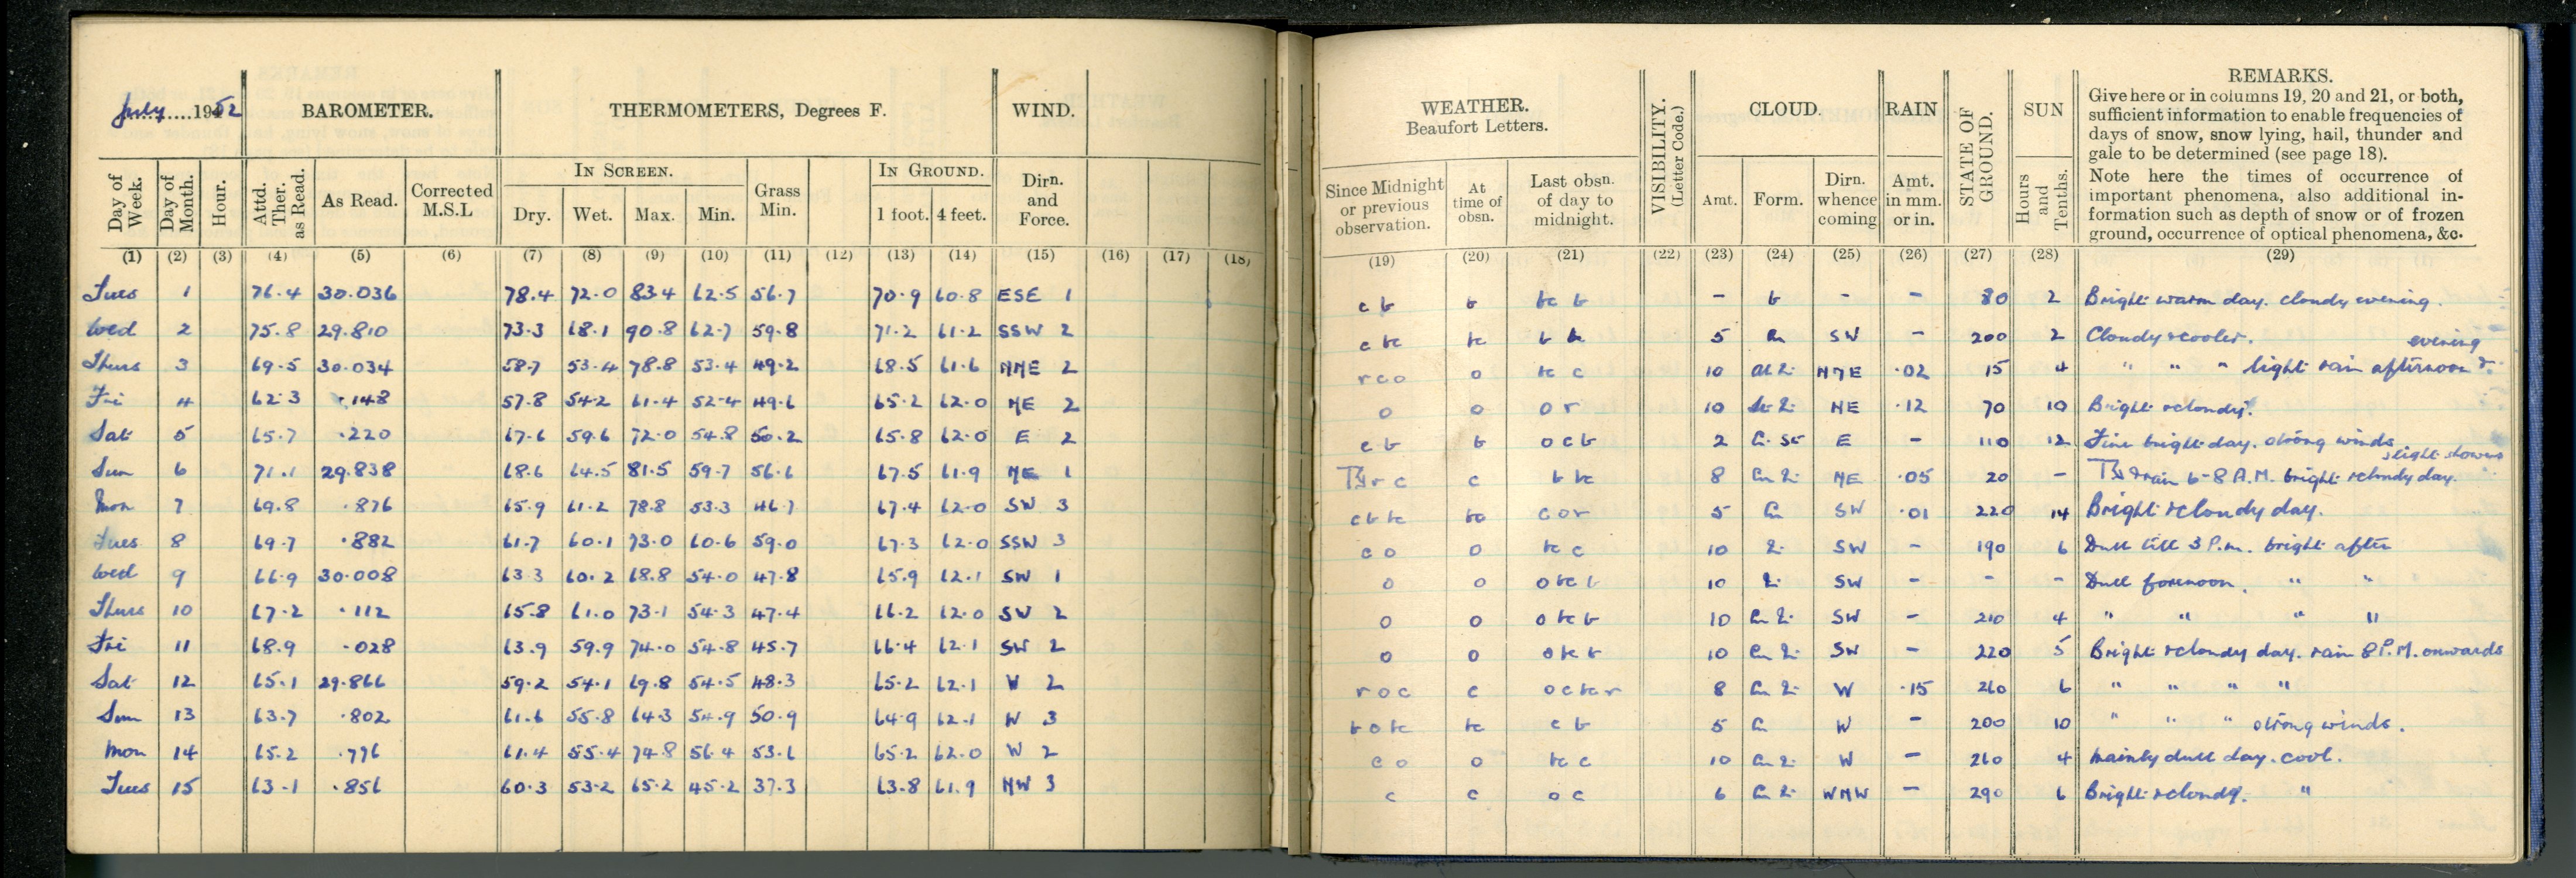 July....1952
BAROMETER.
THERMOMETERS, Degrees F.
WIND.
Day of Week.
Day of Month.
Hour.
Attd. Ther. as Read.
As Read.
Corrected M.S.L
IN SCREEN.
Dry. Wet. Max. Min.
Grass Min.
IN GROUND.
1 foot. 4 feet.
Dirn. and Force.
(1) (2) (3) (4) (5) (6) (7) (8) (9) (10) (11) (12) (13) (14) (15) (16) (17) (18)
Tues 1 76.4 30.036 78.4 72.0 83.4 62.5 56.7 70.9 60.8 ESE 1
Wed 2 75.8 29.810 73.3 68.1 90.8 62.7 59.8 71.2 61.2 SSW 2
Thurs 3 69.5 30.034 58.7 53.4 78.8 53.4 49.2 68.5 61.6 NNE 2
Fri 4 62.3 .148 57.8 54.2 61.4 52.4 49.6 65.2 62.0 NE 2
Sat 5 65.7 .220 67.6 59.6 72.0 54.8 50.2 65.8 62.0 E 2
Sun 6 71.1 29.838 68.6 64.5 81.5 59.7 56.6 67.5 61.9 NE 1
Mon 7 69.8 .876 65.9 61.2 78.8 53.3 46.7 67.4 62.0 SW 3
Tues 8 69.7 .882 61.7 60.1 73.0 60.6 59.0 67.3 62.0 SSW 3
Wed 9 66.9 30.008 63.3 60.2 68.8 54.0 47.8 65.9 62.1 SW 1
Thurs 10 67.2 .112 65.8 61.0 73.1 54.3 47.4 66.2 62.0 SW 2
Fri 11 68.9 .028 63.9 59.9 74.0 54.8 45.7 66.4 62.1 SW 2
Sat 12 65.1 29.866 59.2 54.1 69.8 54.5 48.3 65.2 62.1 W 2
Sun 13 63.7 .802 61.6 55.8 64.3 54.9 50.9 64.9 62.1 W 3
Mon 14 65.2 .776 61.4 55.4 74.8 56.4 53.6 65.2 62.0 W 2
Tues 15 63.1 .856 60.3 53.2 65.2 45.2 37.3 63.8 61.9 NW 3
WEATHER.
Beaufort Letters.
Since Midnight or previous observation.
At time of obsn.
Last obsn. of day to midnight.
VISIBILITY. (Letter Code.)
CLOUD.
Amt. Form. Dirn. whence coming
RAIN
Amt. in mm. or in.
STATE OF GROUND.
SUN
Hours and Tenths.
REMARKS.
Give here or in columns 19, 20 and 21, or both,
sufficient information to enable frequencies of
days of snow, snow lying, hail, thunder and
gale to be determined (see page 18).
Note here the times of occurrence of
important phenomena, also additional in-
formation such as depth of snow or of frozen
ground, occurrence of optical phenomena, &c.
(19) (20) (21) (22) (23) (24) (25) (26) (27) (28) (29)
c b b bc b - b - - 80 2 Bright warm day. cloudy evening.
c bc bc 5 SW - 200 2 Cloudy & cooler.
evening
r c o o bc c 10 NNE .02 15 4 " " " light rain afternoon &
o o o r 10 NE .12 70 10 Bright & cloudy.
c b b o c b 2 E - 110 12 Fine bright day. strong winds
slight showers
r c c b bc 8 NE .05 20 - & rain 6-8 A.M. bright & cloudy day.
c b bc bc c o r 5 SW .01 220 14 Bright & cloudy day.
c o o bc c 10 SW - 190 6 Dull till 3 P.m. bright after
o o o bc b 10 SW - - - Dull forenoon. " "
o o o bc b 10 SW - 210 4 " " " "
o o o bc b 10 SW - 220 5 Bright & cloudy day. rain 8 P.M. onwards
r o c c o c bc r 8 W .15 260 6 " " " "
b o bc bc c b 5 W - 200 10 " " " strong winds.
c o o bc c 10 W - 260 4 Mainly dull day. cool.
c c o c 6 WNW - 290 6 Bright & cloudy. "